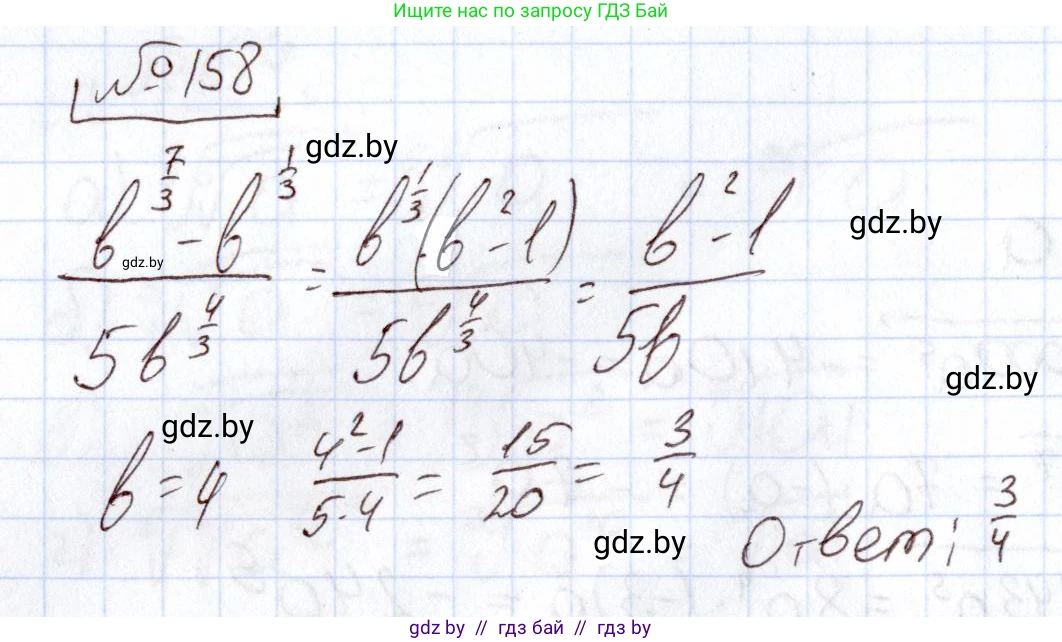 Ищите нас по запросу ГДЗ Бай
№158
gdz.by
(b^(7/3) - b^(1/3)) / (5b^(4/3)) = (b^(1/3)(b^2 - 1)) / (5b^(4/3)) = (b^2 - 1) / (5b)
gdz.by
gdz.by
gdz.by
gdz.by
b = 4 (4^2 - 1) / (5·4) = 15/20 = 3/4
gdz.by
Ответ: 3/4
gdz.by // гдз бай // гдз by